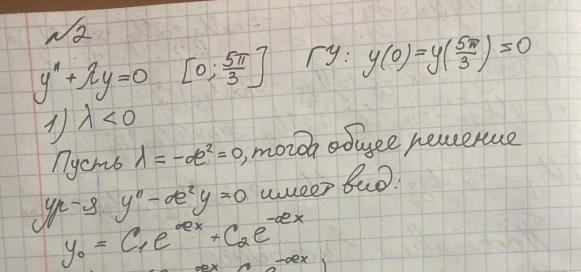 №2
y" + λy = 0 [0; 5π/3] ГУ: y(0) = y(5π/3) = 0
1) λ < 0
Пусть λ = -æ² = 0, тогда общее решение
ур-я y" - æ²y = 0 имеет вид:
y₀ = C₁e^æx + C₂e^-æx